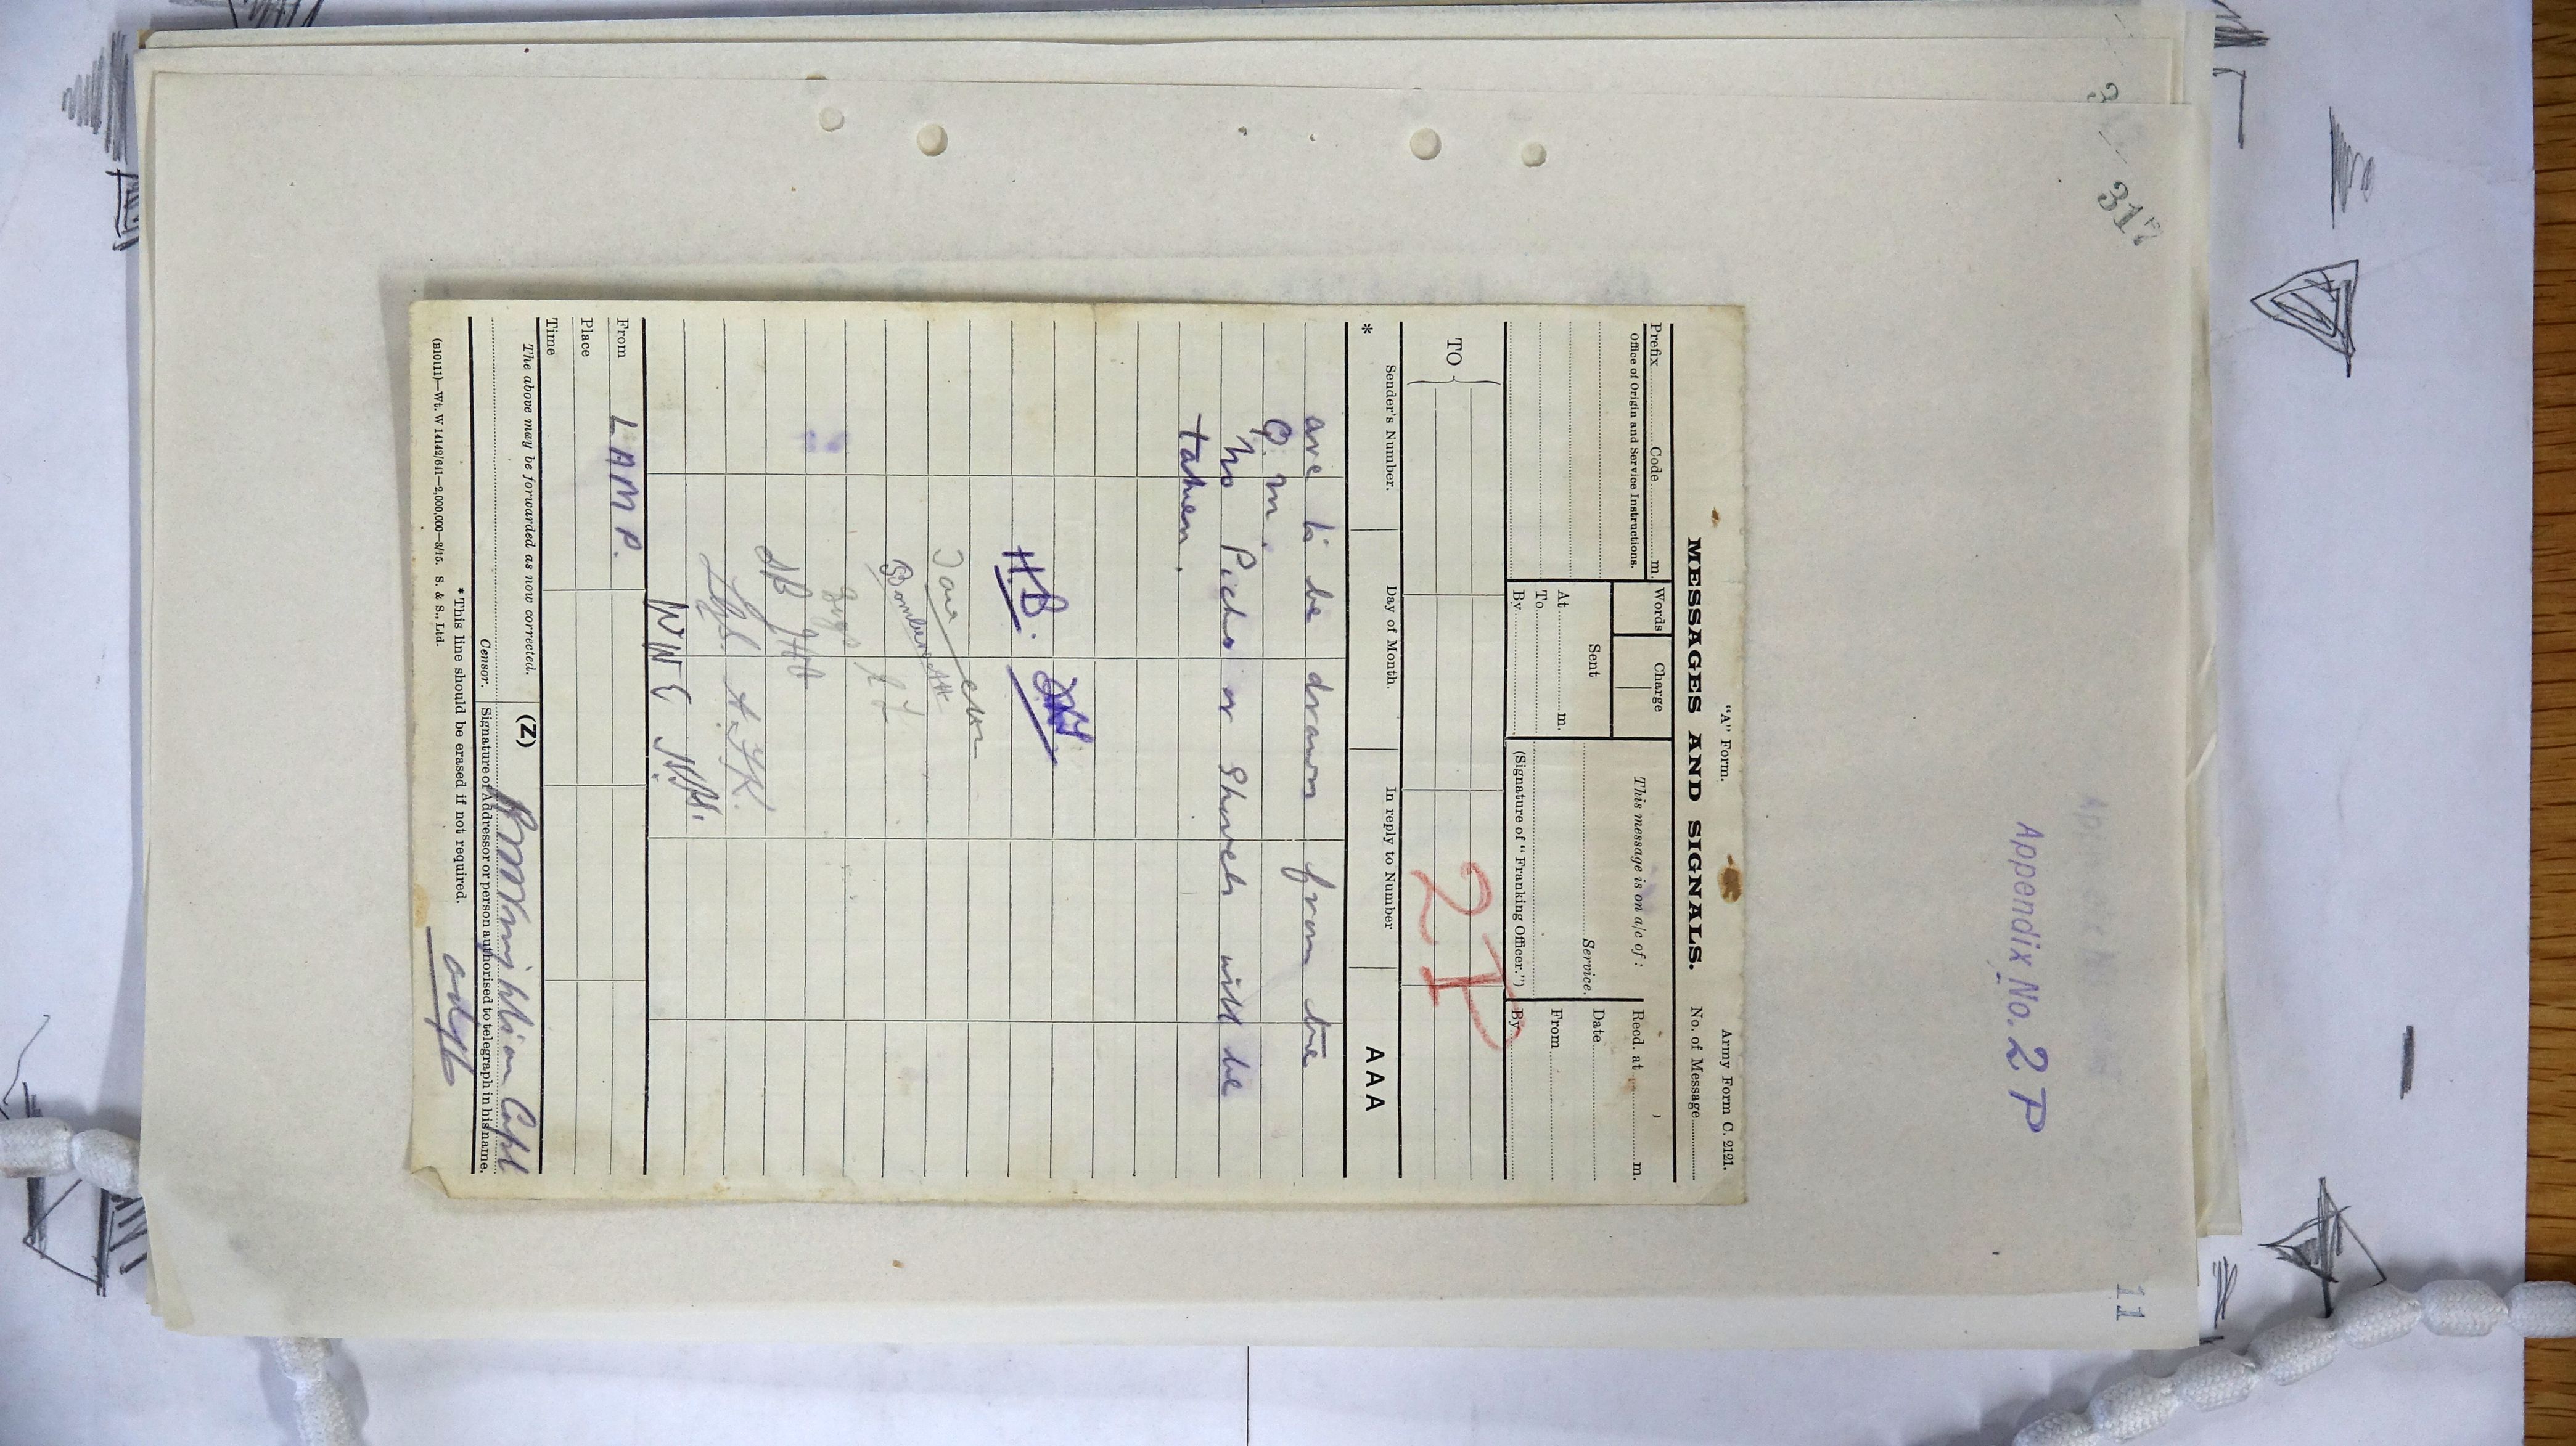 317
Appendix No. 2 P
11
"A" Form.
Army Form C. 2121.
MESSAGES AND SIGNALS.
No. of Message
Prefix Code m.
Words
Charge
This message is on a/c of :
Recd. at m.
Office of Origin and Service Instructions.
Sent
Service.
Date
At m.
From
To
By
(Signature of "Franking Officer.")
By
2P
TO
* Sender's Number.
Day of Month.
In reply to Number
AAA
are to be drawn from the
Q. M.
No Picks or Shovels will be
taken.
H.B.
From LAMP.
Place
Time
The above may be forwarded as now corrected.
(Z)
Capt
Censor.
Signature of Addressor or person authorised to telegraph in his name.
* This line should be erased if not required.
(B10111)—Wt. W 14142/641—2,000,000—3/15. S. & S., Ltd.